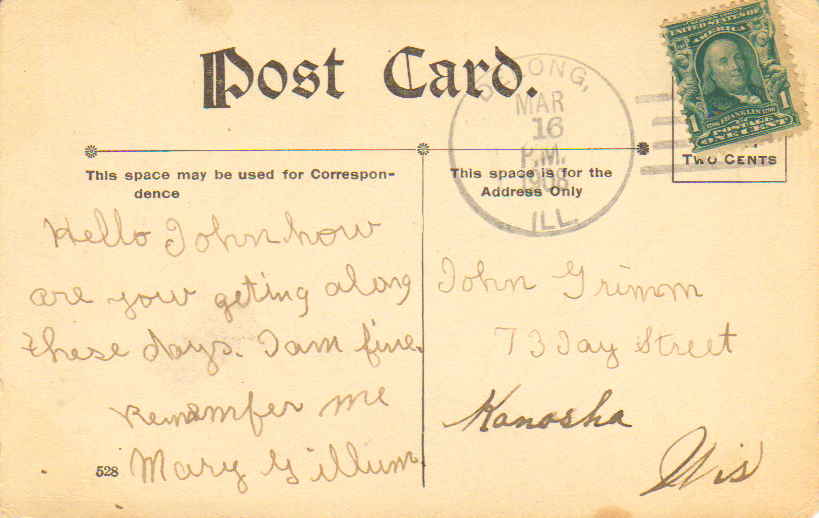 Post Card.
DELONG,
MAR
16
P.M.
1908
ILL.
UNITED STATES OF
AMERICA
1 1
FRANKLIN
POSTAGE
ONE CENT
TWO CENTS
This space may be used for Correspon-
dence
This space is for the
Address Only
Hello John how
are you geting along
these days. I am fine.
Rememfer me
Mary Gillum
528
John Grimm
73 Jay Street
Kanosha
Wis